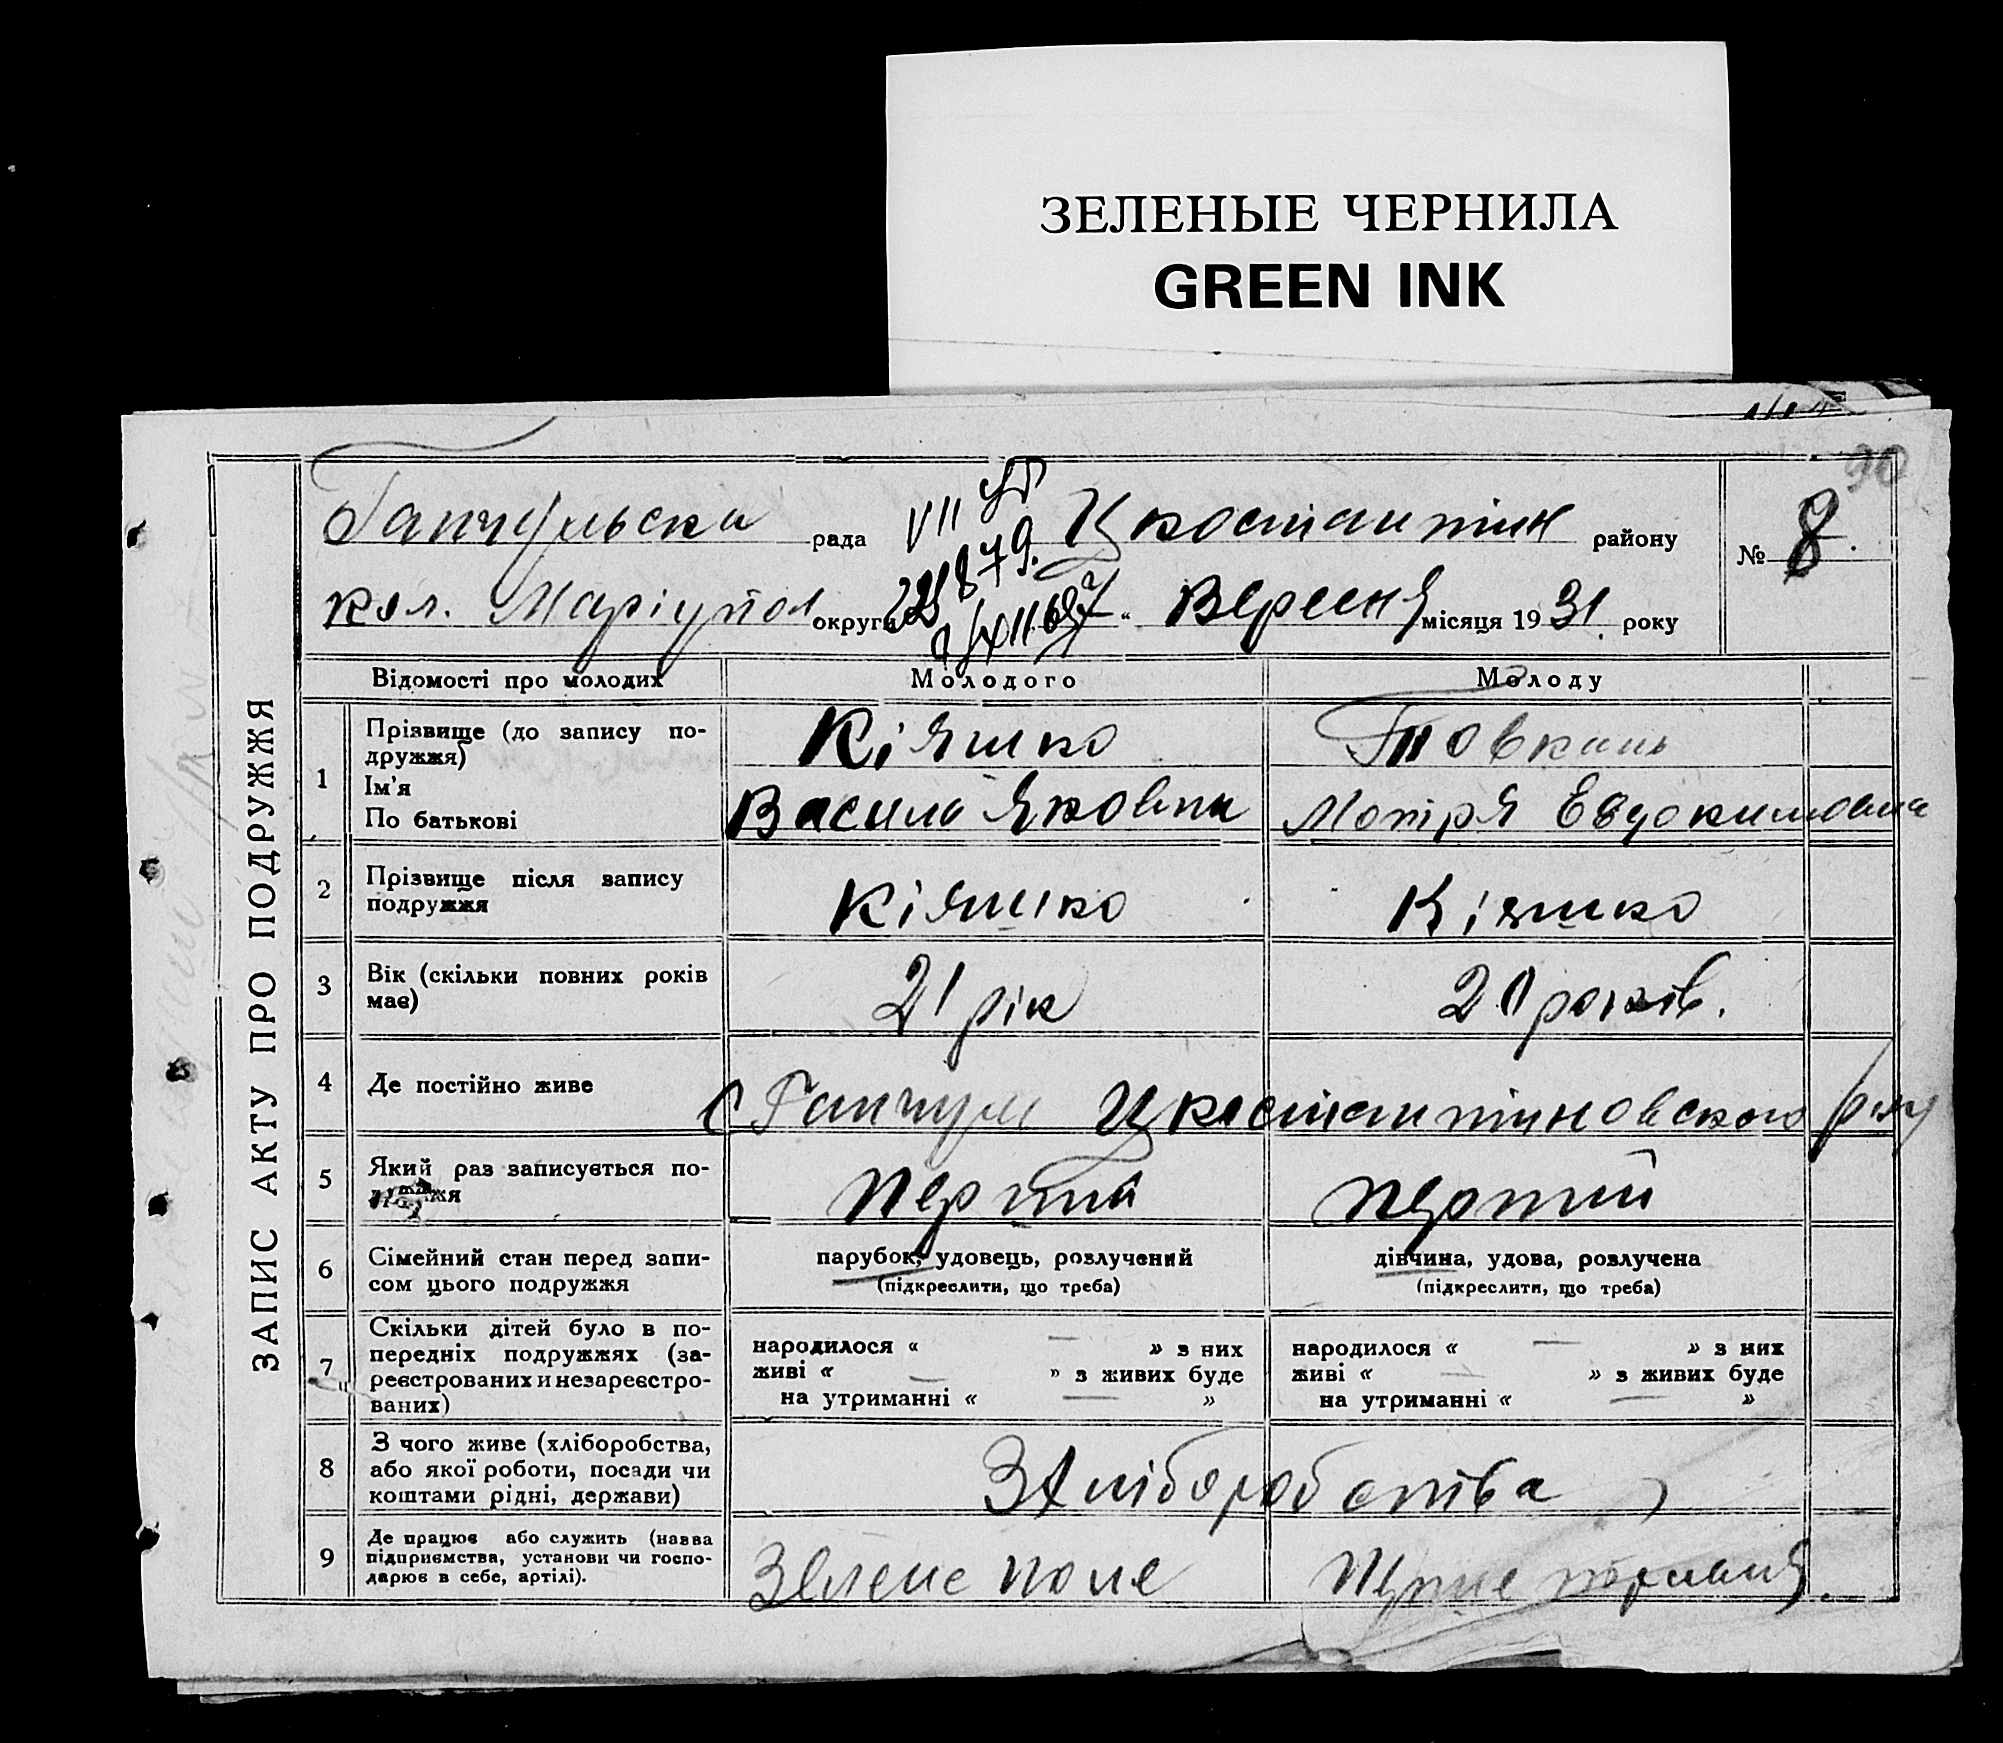 ЗЕЛЕНЫЕ ЧЕРНИЛА
GREEN INK
90
ЗАПИС АКТУ ПРО ПОДРУЖЖЯ
рада VII району № 8.
кол. Маріупол округи Вересня місяця 1931. року
Відомості про молодих Молодого Молоду
1 Прізвище (до запису по-
дружжя) Кіяшко Товкань
Ім'я
По батькові Василь Якович Мотря Евдокимовна
2 Прізвище після запису
подружжя Кіяшко Кіяшко
3 Вік (скільки повних років
має) 21 рік 20 років.
4 Де постійно живе с
5 Який раз записується по-
дружжя перший перший
6 Сімейний стан перед запи-
сом цього подружжя парубок, удовець, розлучений дівчина, удова, розлучена
(підкреслити, що треба) (підкреслити, що треба)
7 Скільки дітей було в по-
передніх подружжях (за-
реєстрованих и незареєстро-
ваних) народилося « — » з них народилося « — » з них
живі « — » з живих буде живі « — » з живих буде
на утриманні « — » на утриманні « — »
8 З чого живе (хліборобства,
або якої роботи, посади чи
коштами рідні, держави) З хліборобства
9 Де працює або служить (назва
підприємства, установи чи госпо-
дарює в себе, артілі). Зелене поле